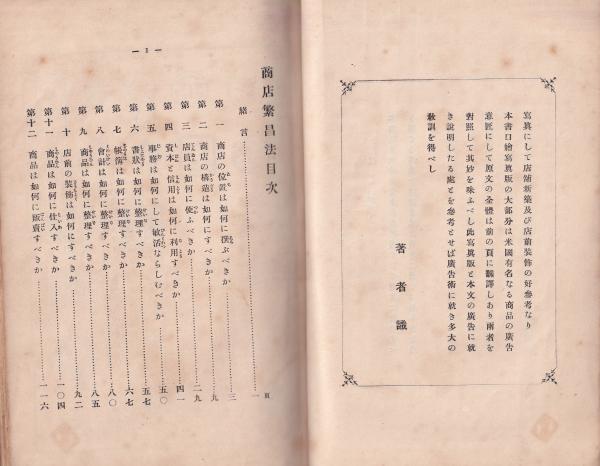 寫眞にして店舖新築及び店前装飾の好參考なり
本書口繪寫眞版の大部分は米國有名なる商品の廣告
意匠にして原文の全體は前の頁に飜譯しあり兩者を
對照して其妙を味ふべし此寫眞版と本文の廣告に就
き說明したる處とを參考とせば廣告術に就き多大の
敎訓を得べし
著者識
— 1 —
商店繁昌法目次
緖言……一頁
第一 商店の位置は如何に撰ぶべきか……三
第二 商店の構造は如何にすべきか……九
第三 店員は如何に使ふべきか……二九
第四 資本と信用は如何に利用すべきか……四一
第五 事務は如何にして敏活ならしむべきか……五〇
第六 書狀は如何に整理すべきか……五七
第七 帳簿は如何に整理すべきか……六七
第八 會計は如何に整理すべきか……八〇
第九 商品は如何に整理すべきか……八五
第十 店前の装飾は如何にすべきか……九二
第十一 商品は如何に仕入すべきか……一〇四
第十二 商品は如何に販賣すべきか……一一六